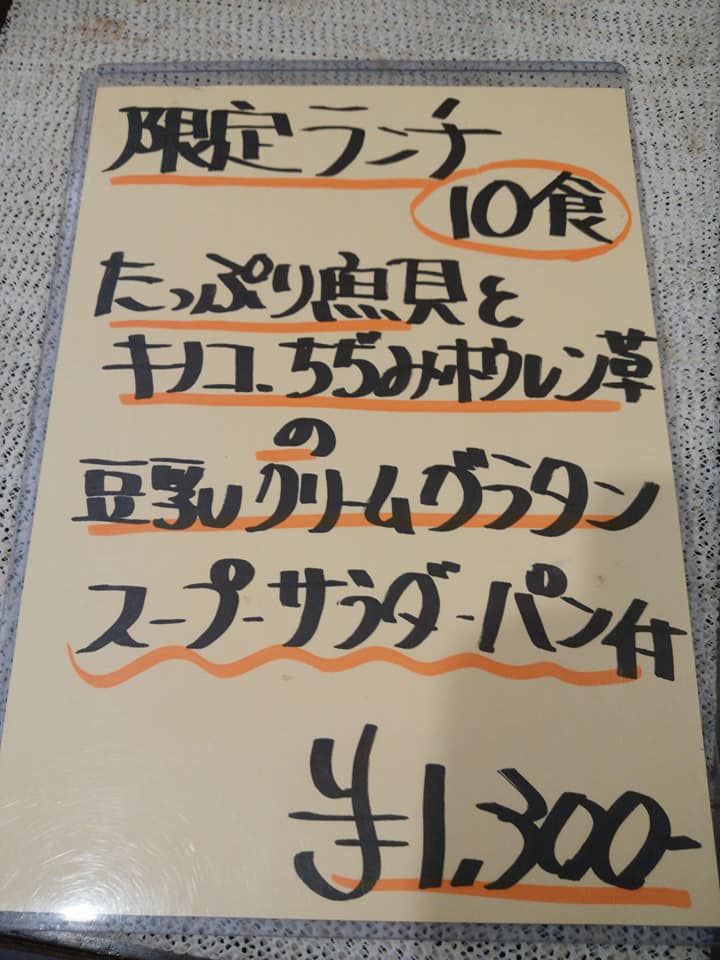 限定ランチ
10食
たっぷり魚貝と
キノコ、ちぢみホウレン草
の
豆乳クリームグラタン
スープ-サラダ-パン付
¥1,300-